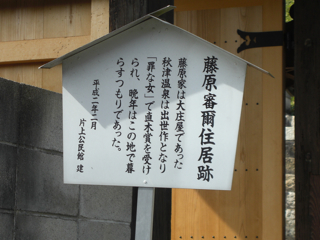 藤原審爾住居跡
藤原家は大庄屋であった
秋津温泉は出世作となり
「罪な女」で直木賞を受け
られ、晩年はこの地で暮
らすつもりであった。
平成二年二月
片上公民館 建